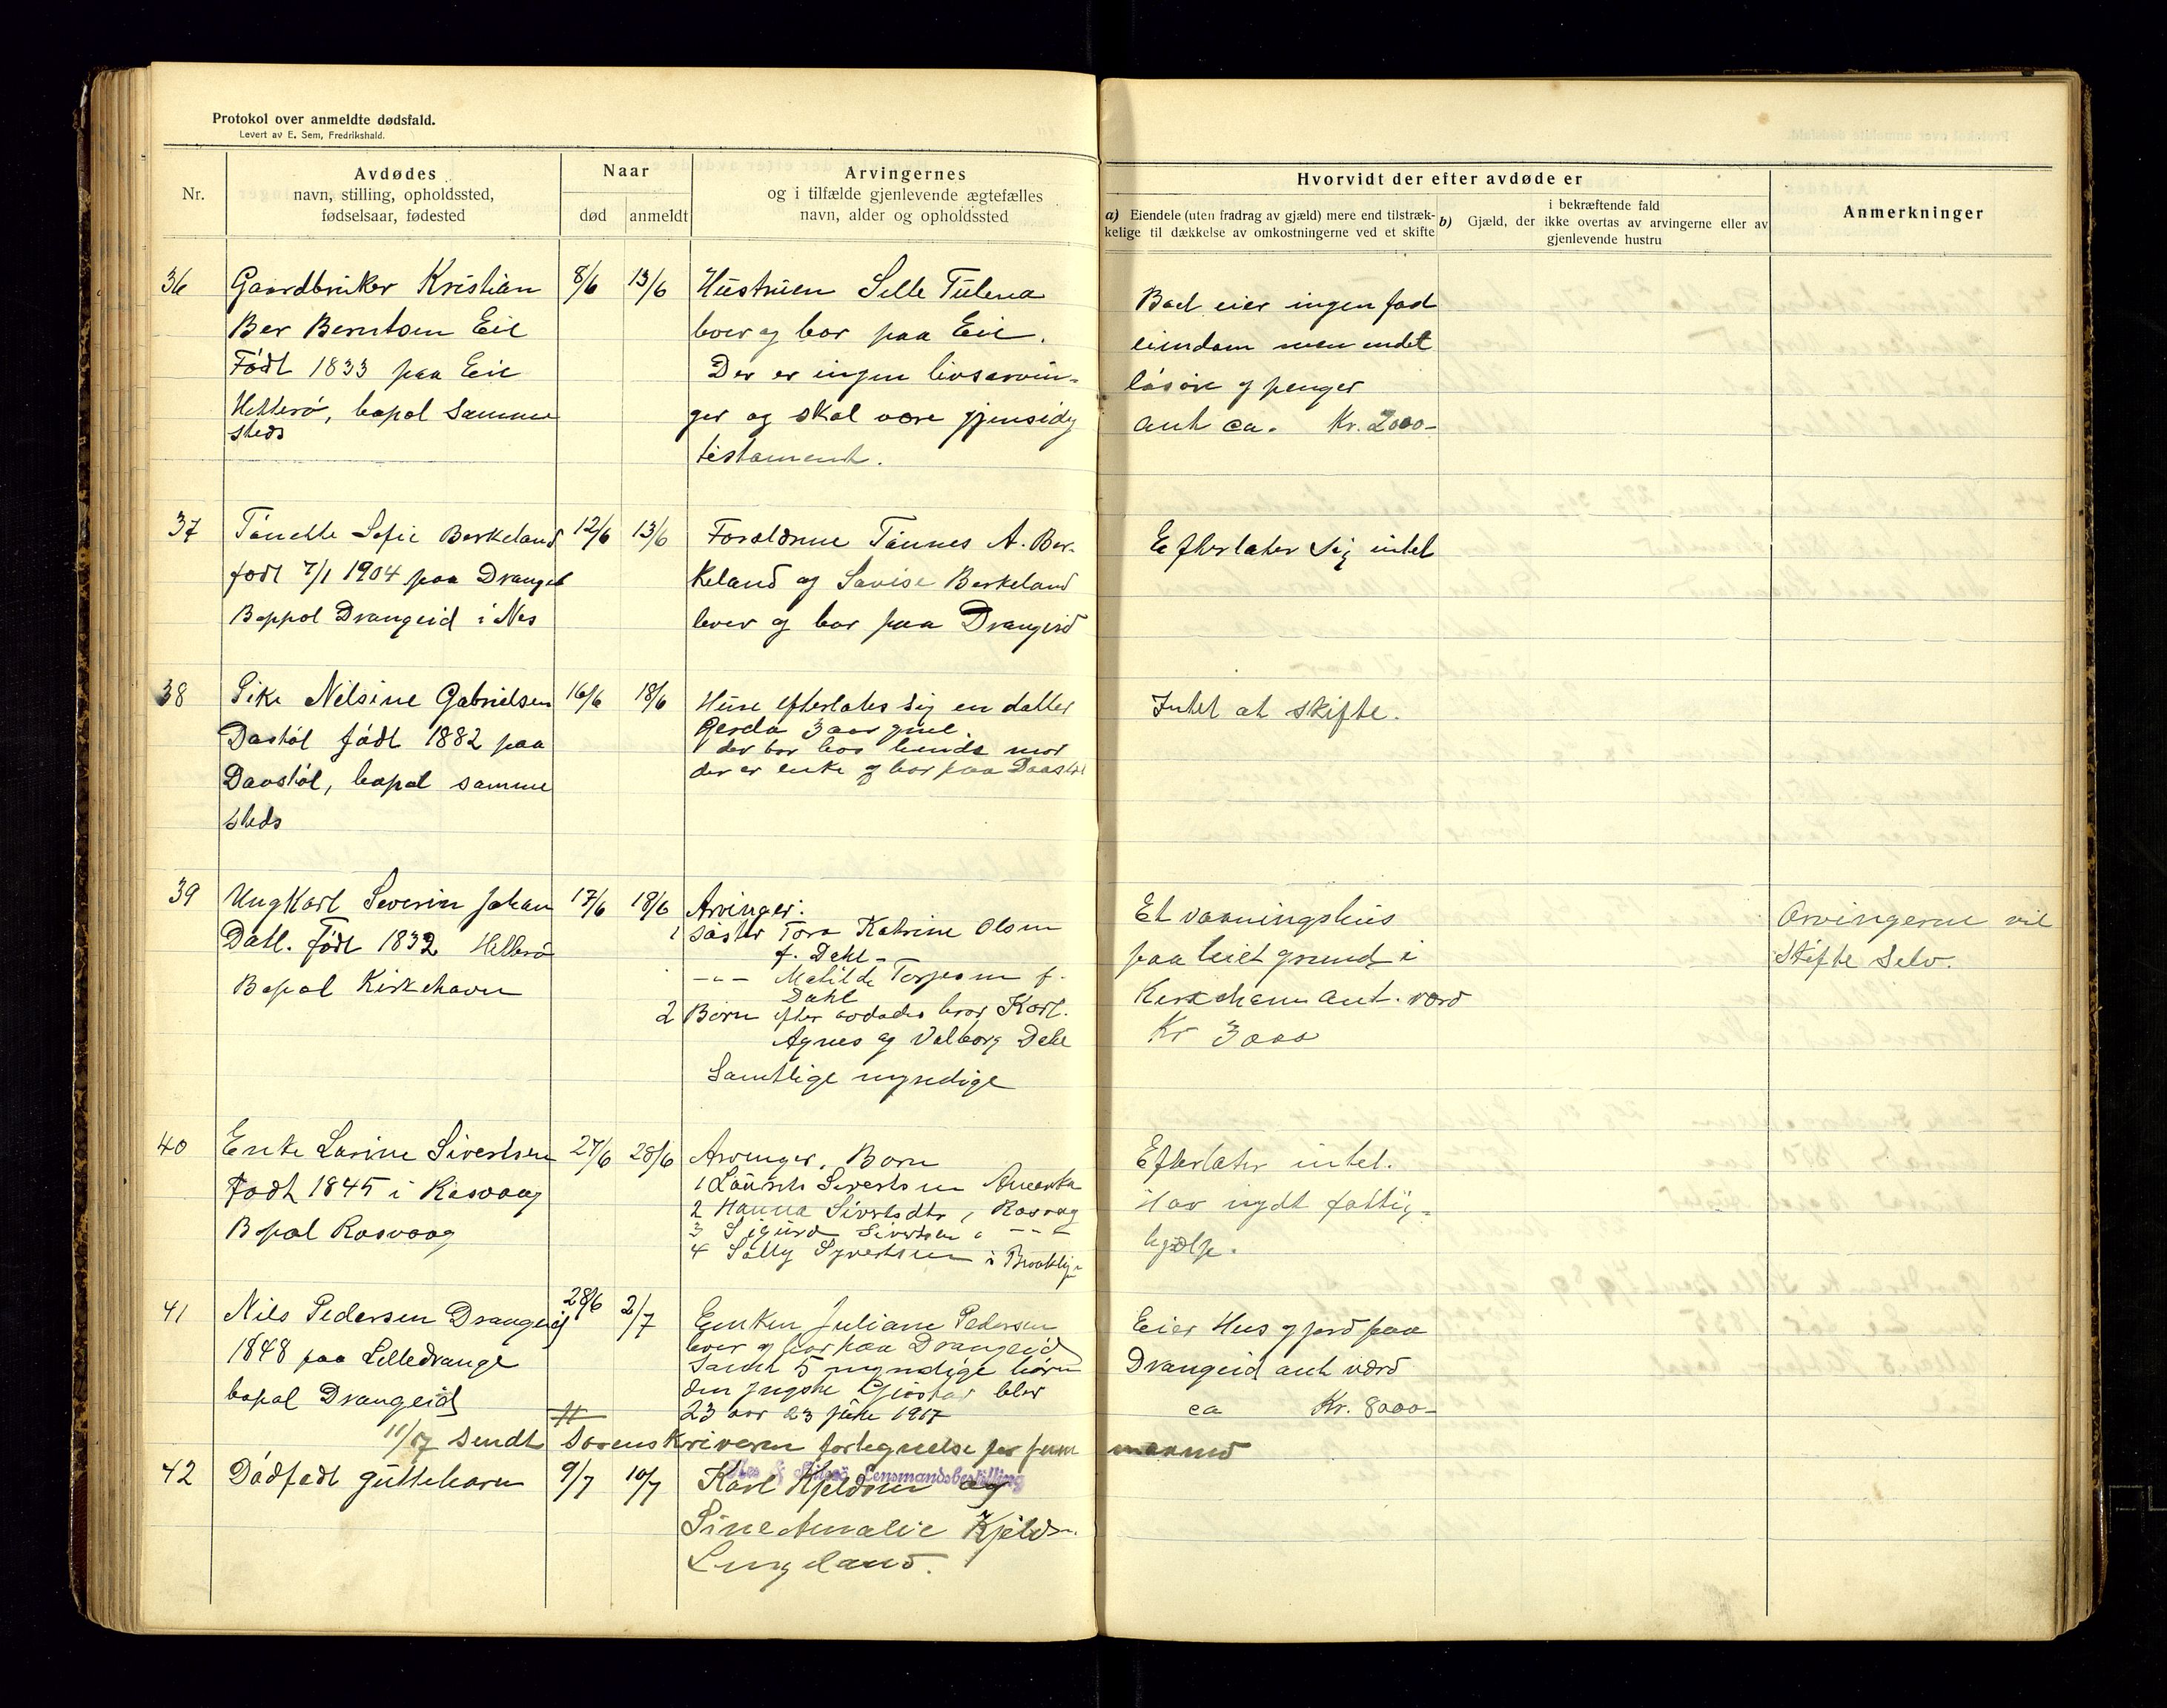 Protokol over anmeldte dødsfald.
Levert av E. Sem, Fredrikshald.
Nr.
Avdødes
navn, stilling, opholdssted,
fødselsaar, fødested
Naar
død
anmeldt
Arvingernes
og i tilfælde gjenlevende ægtefælles
navn, alder og opholdssted
Hvorvidt der efter avdøde er
a) Eiendele (uten fradrag av gjæld) mere end tilstræk-
kelige til dækkelse av omkostningerne ved et skifte
i bekræftende fald
b) Gjæld, der ikke overtas av arvingerne eller av
gjenlevende hustru
Anmerkninger
36
Gaardbruker Kristian
Ber Berntsen Eie
Født 1833 paa Eie
Hitterø, bopæl samme
steds
8/6
13/6
Hustruen Sille Tulena
lever og bor paa Eie.
Der er ingen livsarvin-
ger og skal være gjensidig
testament.
Boet eier ingen fast
eiendom men endel
løsøre og penger
ant ca. Kr. 2000-
37
Tønette Sofie Berkeland
født 7/1 1904 paa Drangeid
Boppæl Drangeid i Nes
12/6
13/6
Forældrene Tønnes A. Ber-
keland og Lovise Berkeland
lever og bor paa Drangeid
Efterlater sig intet
38
Pike Nilsine Gabrielsen
Dastøl født 1882 paa
Davstøl, bopæl samme
steds
16/6
18/6
Hun efterlates sig en datter
Gerda 3 aar gml.
der bor hos hends mor
der er enke og bor paa Daastøl
Intet at skifte.
39
Ungkarl Severin Johan
Dall. født 1832 Hitterø
Bopæl Kirkehavn
17/6
18/6
Arvinger:
1 Søster Tora Katrine Olsen
f. Dahl -
-"- Matilde Torjesen f.
Dahl
2 Børn efter avdødes bror Karl.
Agnes og Valborg Dahl
Samtlige myndige
Et vaaningshus
paa leiet grund i
Kirkehavn ant. værd
Kr 3000
Arvingerne vil
skifte selv.
40
Enke Larine Sivertsen
Født 1845 i Rasvaag
Bopæl Rasvaag
27/6
28/6
Arvinger. Børn
1 Laurits Sivertsen Amerika
2 Hanna Sivertsdtr, Rasvag
3 Sigurd Sivertsen " - " -
4 Sally Syvertsen i Brooklyn
Efterlater intet.
Har nydt fattig-
hjælp.
41
Nils Pedersen Drangeid
1848 paa Lilledrange
bopæl Drangeid
28/6
2/7
Enken Juliane Pedersen
lever og bor paa Drangeid
samt 5 myndige børn
den yngste Gustav blev
23 aar 23 juni 1917
Eier Hus og jord paa
Drangeid ant værd
ca Kr. 8000-
11/7 sendt sorenskriveren fortegnelse for juni maaned
Nes & Hitterø Lensmandsbestilling
42
Dødfødt guttebarn
9/7
10/7
Karl Kjeldsen og
Sine Amalie Kjelds.
Lungeland.